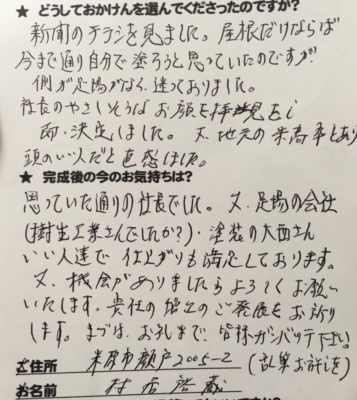 ★ どうしておかけんを選んでくださったのですか?
新聞のチラシを見ました。屋根だけならば
今まで通り自分で塗ろうと思っていたのですが
側が足場がなく迷っておりました。
社長のやさしそうなお顔を拝見をし
即決定しました。又、地元の米高卒とあり
頭のいい人だと直感しました。
★ 完成後の今のお気持ちは?
思っていた通りの社長でした。又、足場の会社
(樹生工業さんでしたか?)・塗装の大西さん
いい人達で仕上がりも満足しております。
又、機会がありましたらよろしくお願い
いたします。貴社の増々のご発展をお祈り
します。まづは、お礼まで、皆様ガンバッテ下さい。
ご住所 米原市顔戸2005-2 (乱筆お許しを)
お名前